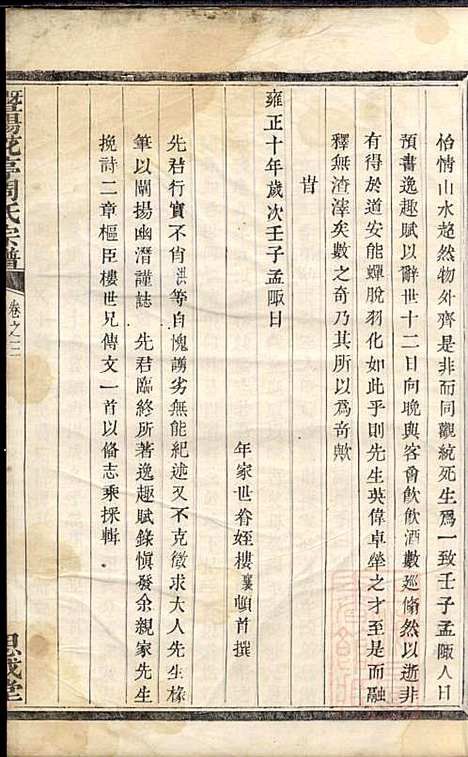 怡情山水超然物外齊是非而同觀統死生爲一致壬子孟陬人日
預書逸趣賦以辭世十二日向晚與客會飲飲酒數廵翛然以逝非
有得於道安能蟬脫羽化如此乎則先生英偉卓犖之才至是而融
釋無渣滓矣數之奇乃其所以爲奇歟
旹
雍正十年歲次壬子孟陬日
年家世眷姪樓襄頓首撰
先君行實不肖洪等自愧謭劣無能紀述又不克徵求大人先生椽
筆以闡揚幽潛謹誌　先君臨終所著逸趣賦錄愼發余親家先生
挽詩二章樞臣樓世兄傳文一首以俻志乘採輯
暨陽花亭周氏宗譜
卷之二
思成堂